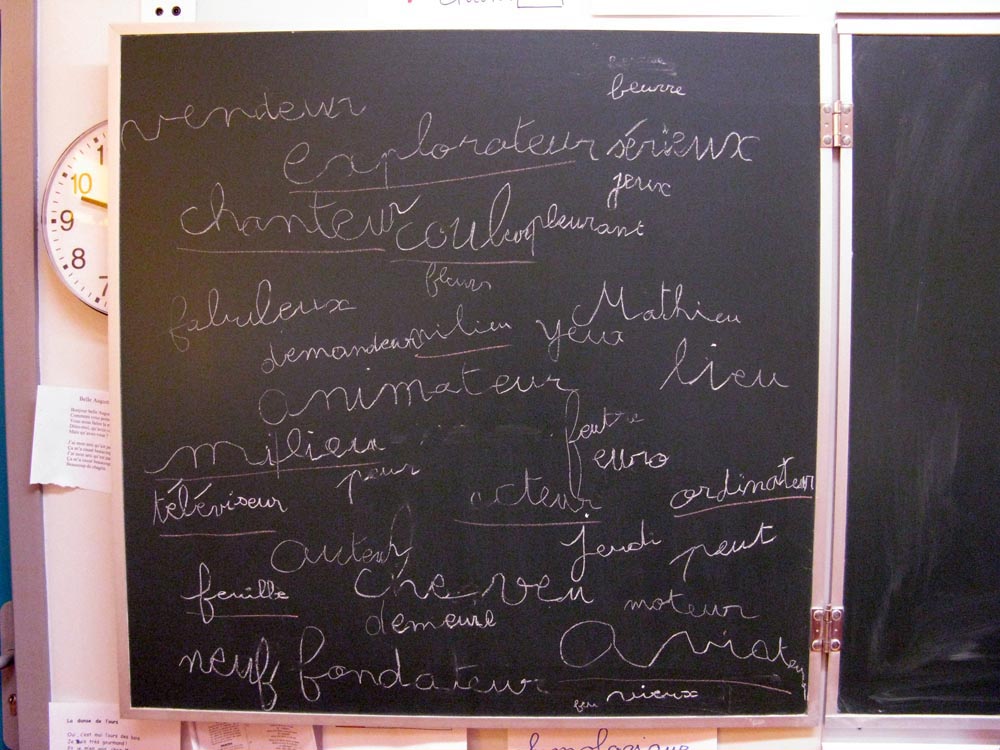 beurre
vendeur
explorateur sérieux
jeux
chanteur couleur pleurant
fleurs
fabuleux
Mathieu
demandeur milieu yeux
lieu
animateur
feutre
milieu
euro
peur
téléviseur
acteur
ordinateur
auteur
jeudi
peut
feuille
cheveu
moteur
demeure
neuf fondateur
Aviateur
feu vieux
10
9
8
7
La danse de l'ours